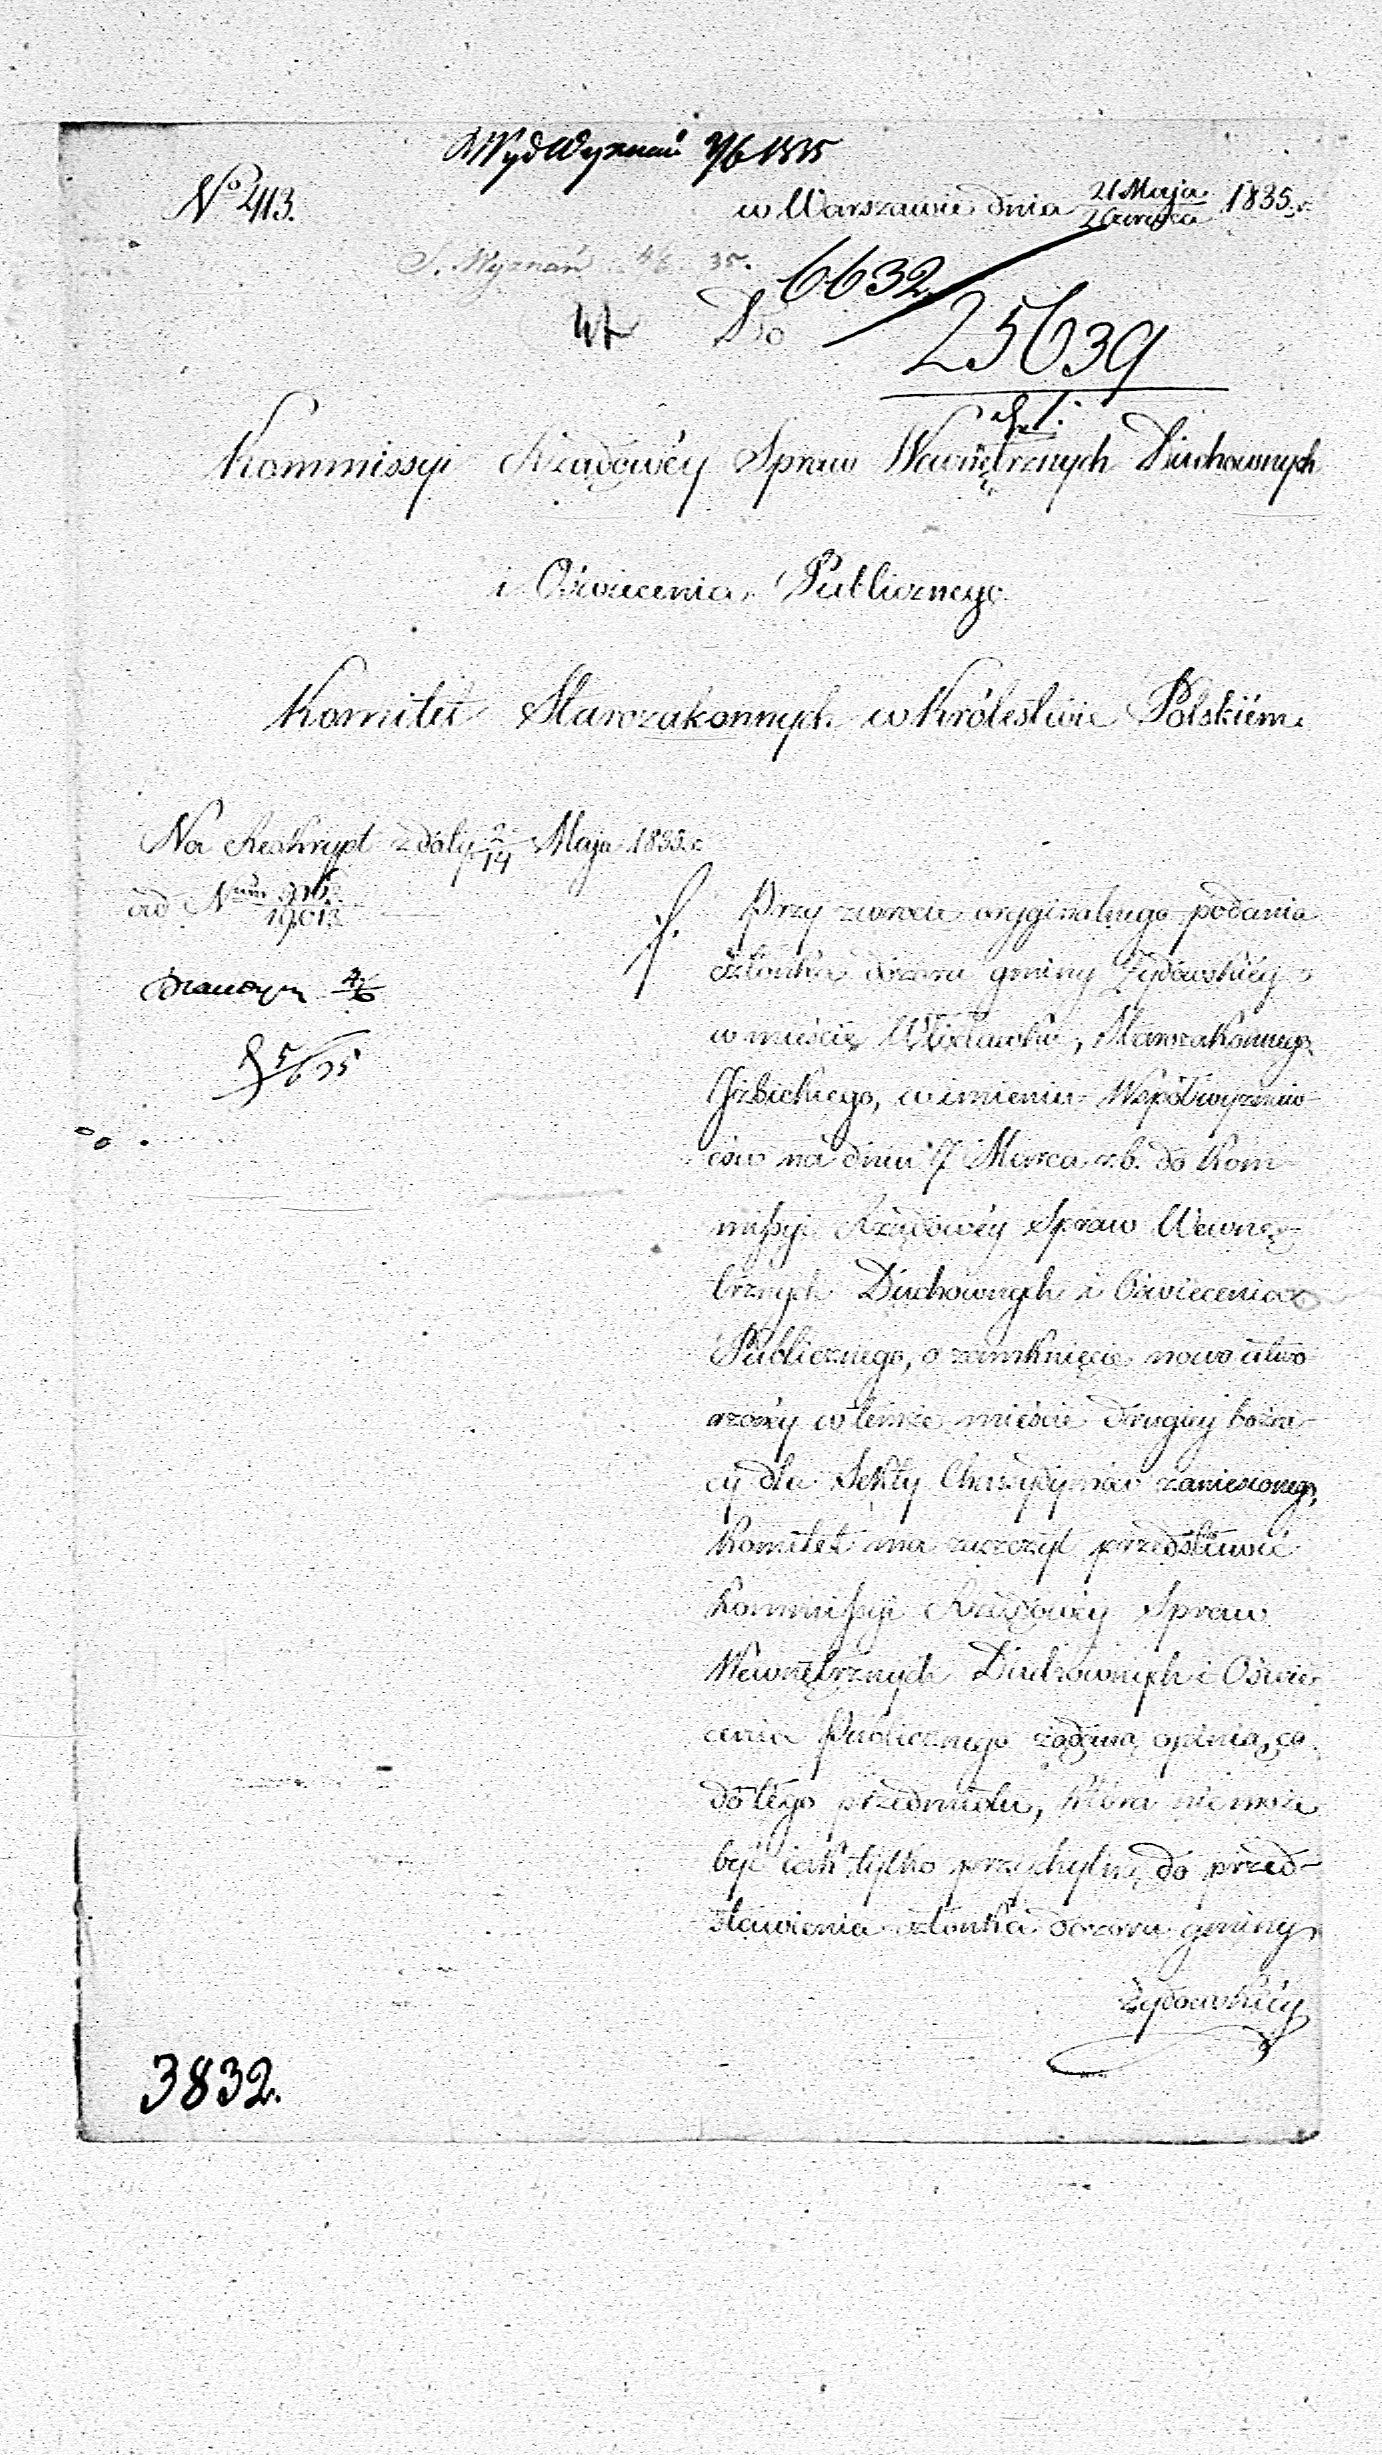 Wyd Wyznań 3/6 1835
No 413.
w Warszawie dnia 21 Maja / 2 Czerwca 1835 r.
S. Wyznań 4/6 35.
6632 / 25639
47
Do
Kommissyi Rządowéy Spraw Wewnętrznych Duchownych
i Oświecenia Publicznego
Komitet Starozakonnych w Królestwie Polskiém
Na Reskrypt z daty 2/14 Maja 1835 r.
ad Num
5/6 35
Przy zwrocie oryginalnego podania
członka dozoru gminy Żydowskiéy
w mieście Włocławku, Starozakonnego
Jzbickiego, w imieniu Współwyznaw-
ców na dniu 17 Marca r.b. do Kom-
missyi Rządowéy Spraw Wewnę-
trznych Duchownych i Oświecenia
Publicznego, o zamknięcie nowo utwo-
rzonéy w témże mieście drugiéy bożni-
cy dla Sekty Chassydymów zaniesionego,
Komitet ma zaszczyt przedstawić
Kommissyi Rządowéy Spraw
Wewnętrznych Duchownych i Oświe-
cenia Publicznego żądaną opinią, co
do tego przedmiotu, która nie może
być iak tylko przychylną do przed-
stawienia członka dozoru gminy
Żydowskiéy
3832.